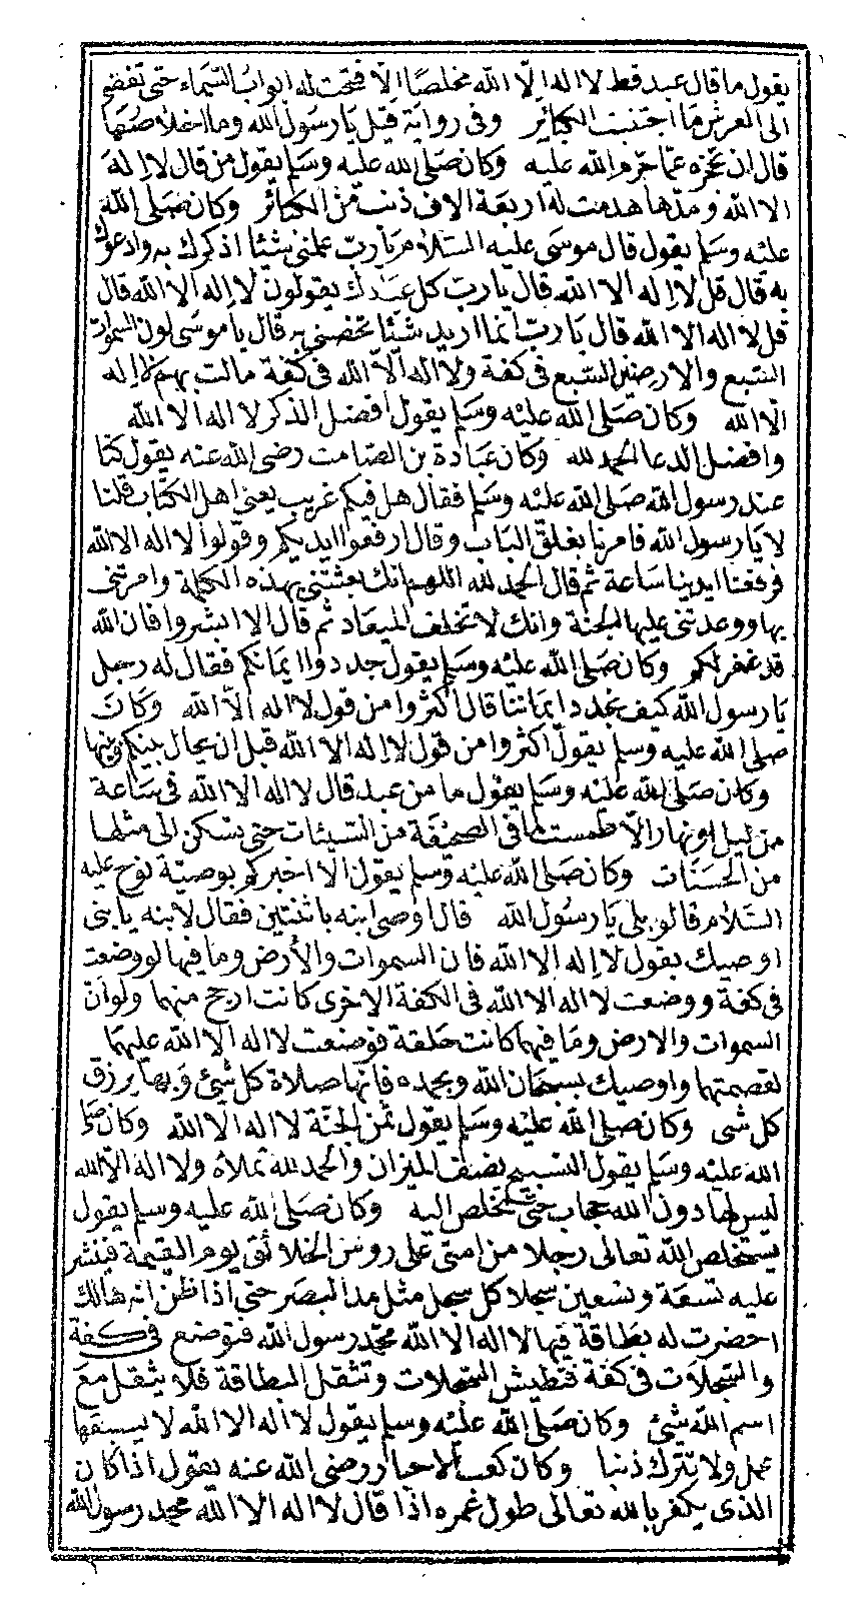 يقول ما قال عبد قط لا اله الا الله مخلصا الا فتحت له ابواب السماء حتى تفضى
الى العرش ما اجتنبت الكبائر وفى رواية قيل يا رسول الله وما اخلاصها
قال ان تحجزه عما حرم الله عليه وكان صلى الله عليه وسلم يقول من قال لا اله
الا الله ومدها هدمت له اربعة الاف ذنب من الكبائر وكان صلى الله
عليه وسلم يقول قال موسى عليه السلام يا رب علمنى شيئا اذكرك به وادعوك
به قال قل لا اله الا الله قال يا رب كل عبادك يقولون لا اله الا الله قال
قل لا اله الا الله قال يا رب انما اريد شيئا تخصنى به قال يا موسى لو ان السموات
السبع والارضين السبع فى كفة ولا اله الا الله فى كفة مالت بهم لا اله
الا الله وكان صلى الله عليه وسلم يقول افضل الذكر لا اله الا الله
وافضل الدعا الحمد لله وكان عبادة بن الصامت رضى الله عنه يقول كنا
عند رسول الله صلى الله عليه وسلم فقال هل فيكم غريب يعنى اهل الكتاب قلنا
لا يا رسول الله فامرنا بغلق الباب وقال ارفعوا ايديكم وقولوا لا اله الا الله
فرفعنا ايدينا ساعة ثم قال الحمد لله اللهم انك بعثتنى بهذه الكلمة وامرتنى
بها ووعدتنى عليها الجنة وانك لا تخلف الميعاد ثم قال الا ابشروا فان الله
قد غفر لكم وكان صلى الله عليه وسلم يقول جددوا ايمانكم فقال له رجل
يا رسول الله كيف نجدد ايماننا قال اكثروا من قول لا اله الا الله وكان
صلى الله عليه وسلم يقول اكثروا من قول لا اله الا الله قبل ان يحال بينكم وبينها
وكان صلى الله عليه وسلم يقول ما من عبد قال لا اله الا الله فى ساعة
من ليل او نهار الا طمست ما فى الصحيفة من السيئات حتى يسكن الى مثلها
من الحسنات وكان صلى الله عليه وسلم يقول الا اخبركم بوصية نوح عليه
السلام قالو بلى يا رسول الله قال اوصى ابنه باثنتين فقال لابنه يا بنى
اوصيك بقول لا اله الا الله فان السموات والأرض وما فيها لو وضعت
فى كفة ووضعت لا اله الا الله فى الكفة الاخرى كانت ارجح منهما ولو ان
السموات والارض وما فيهما كانت حلقة فوضعت لا اله الا الله عليهما
لقصمتهما واوصيك بسبحان الله وبحمده فانها صلاة كل شئ وبها يرزق
كل شى وكان صلى الله عليه وسلم يقول ثمن الجنة لا اله الا الله وكان صلى
الله عليه وسلم يقول التسبيح نصف الميزان والحمد لله تملاه ولا اله الا الله
ليس لها دون الله حجاب حتى تخلص اليه وكان صلى الله عليه وسلم يقول
يستخلص الله تعالى رجلا من امتى على روس الخلائق يوم القيمة فينشر
عليه تسعة وتسعين سجلا كل سجل مثل مد البصر حتى اذا ظن انه هالك
احضرت له بطاقة فيها لا اله الا الله محمد رسول الله فتوضع فى كفة
والسجلات فى كفة فتطيش السجلات وتثقل البطاقة فلا يثقل مع
اسم الله شئ وكان صلى الله عليه وسلم يقول لا اله الا الله لا يسبقها
عمل ولا تترك ذنبا وكان كعب الاحبار رضى الله عنه يقول اذا كان
الذى يكفر بالله تعالى طول عمره اذا قال لا اله الا الله محمد رسول الله